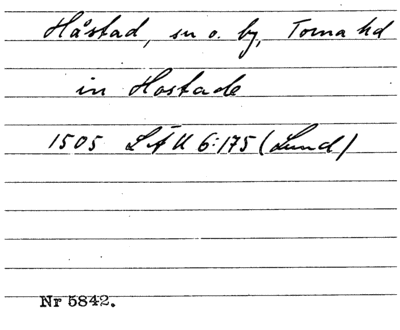 Håstad, sn o. by, Torna hd
in Hostade
1505 LÄU 6:175 (Lund)
Nr 5842.